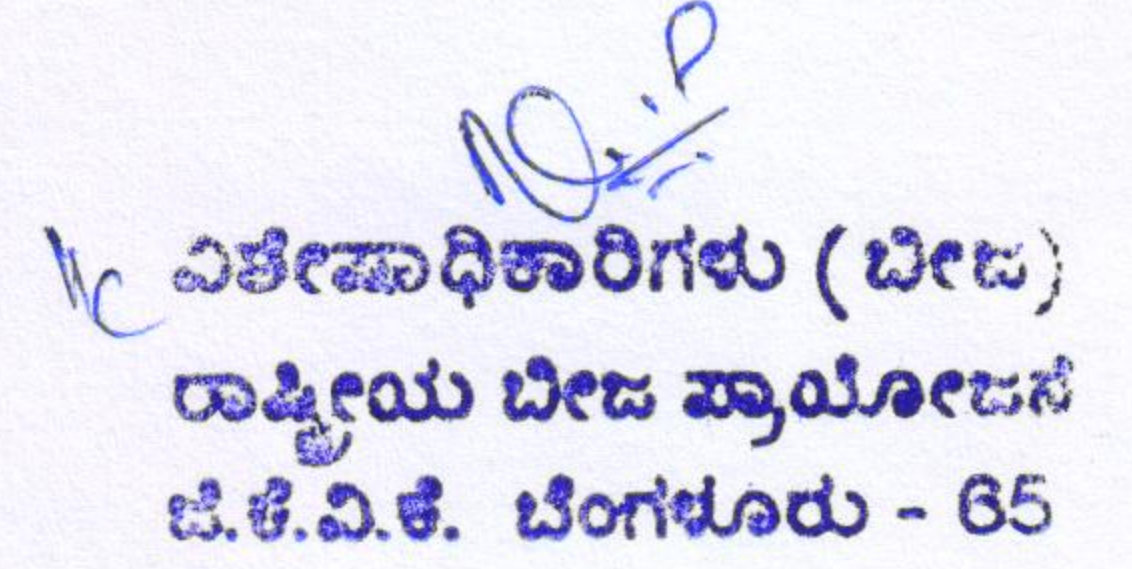 ವಿಶೇಷಾಧಿಕಾರಿಗಳು (ಬೀಜ)
ರಾಷ್ಟ್ರೀಯ ಬೀಜ ಪ್ರಾಯೋಜನೆ
ಜಿ.ಕೆ.ವಿ.ಕೆ. ಬೆಂಗಳೂರು - 65